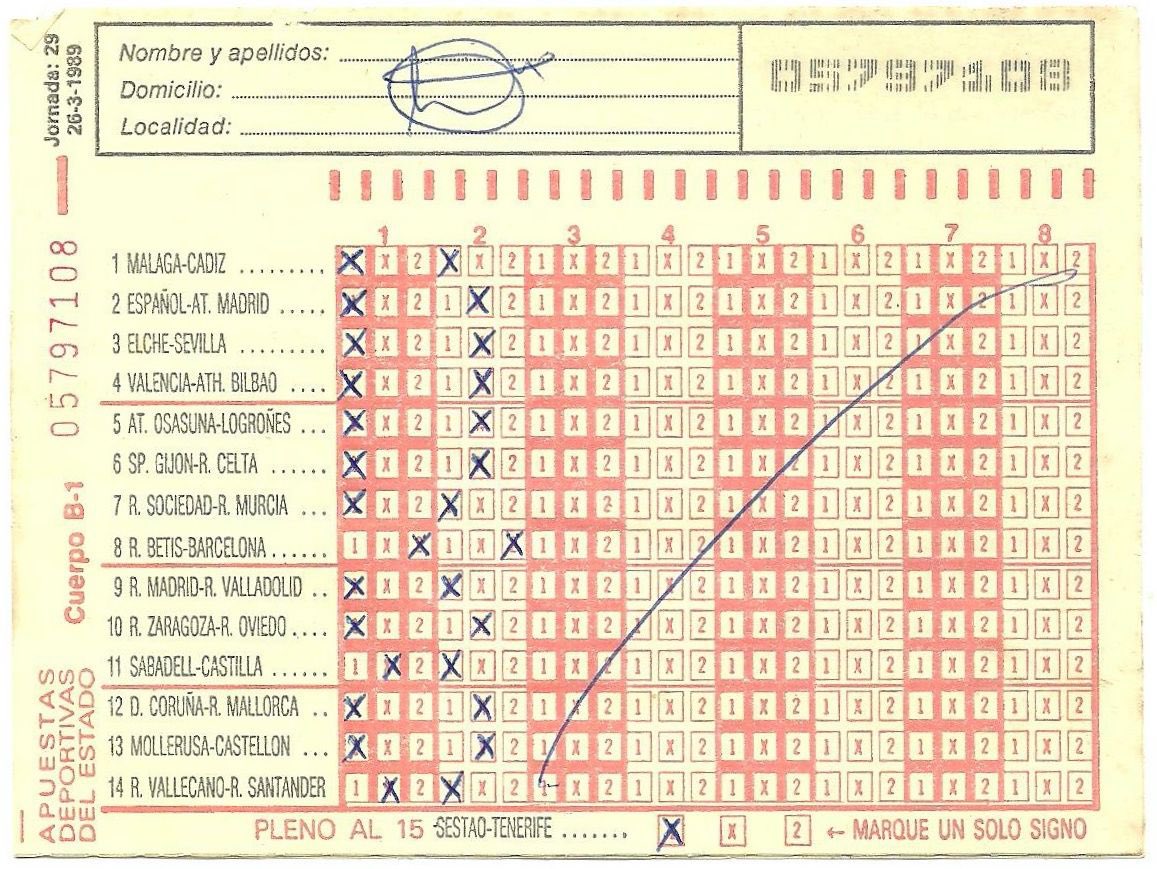 Jornada: 29
26-3-1989
Nombre y apellidos:
Domicilio:
Localidad:
05797108
05797108
Cuerpo B-1
APUESTAS
DEPORTIVAS
DEL ESTADO
1 2 3 4 5 6 7 8
1 MALAGA-CADIZ ......... X 2 X 2 1 X 2 1 X 2 1 X 2 1 X 2 1 X 2 1 X 2
2 ESPAÑOL-AT. MADRID ..... X 2 1 2 1 X 2 1 X 2 1 X 2 1 X 2 1 X 2 1 X 2
3 ELCHE-SEVILLA ......... X 2 1 2 1 X 2 1 X 2 1 X 2 1 X 2 1 X 2 1 X 2
4 VALENCIA-ATH. BILBAO .... X 2 1 2 1 X 2 1 X 2 1 X 2 1 X 2 1 X 2 1 X 2
5 AT. OSASUNA-LOGROÑES ... X 2 1 2 1 X 2 1 X 2 1 X 2 1 X 2 1 X 2 1 X 2
6 SP. GIJON-R. CELTA ...... X 2 1 2 1 X 2 1 X 2 1 X 2 1 X 2 1 X 2 1 X 2
7 R. SOCIEDAD-R. MURCIA ... X 2 X 2 1 X 2 1 X 2 1 X 2 1 X 2 1 X 2 1 X 2
8 R. BETIS-BARCELONA ...... 1 X 1 X 1 X 2 1 X 2 1 X 2 1 X 2 1 X 2 1 X 2
9 R. MADRID-R. VALLADOLID .. X 2 X 2 1 X 2 1 X 2 1 X 2 1 X 2 1 X 2 1 X 2
10 R. ZARAGOZA-R. OVIEDO .... X 2 1 2 1 X 2 1 X 2 1 X 2 1 X 2 1 X 2 1 X 2
11 SABADELL-CASTILLA ...... 1 2 X 2 1 X 2 1 X 2 1 X 2 1 X 2 1 X 2 1 X 2
12 D. CORUÑA-R. MALLORCA .. X 2 1 2 1 X 2 1 X 2 1 X 2 1 X 2 1 X 2 1 X 2
13 MOLLERUSA-CASTELLON ... X 2 1 2 1 X 2 1 X 2 1 X 2 1 X 2 1 X 2 1 X 2
14 R. VALLECANO-R. SANTANDER 1 2 X 2 1 X 2 1 X 2 1 X 2 1 X 2 1 X 2 1 X 2
PLENO AL 15 SESTAO-TENERIFE ....... X 2 ← MARQUE UN SOLO SIGNO